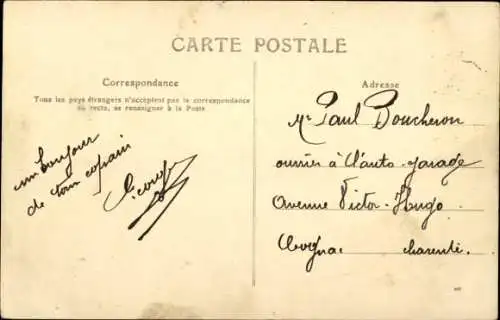 CARTE POSTALE
Correspondance
Tous les pays étrangers n'acceptent pas la correspondance
au recto, se renseigner à la Poste
un bonjour
de ton copain
Georges
Adresse
Mr Paul Boucheron
ouvrier à l'auto-garage
Avenue Victor-Hugo
Cognac charente